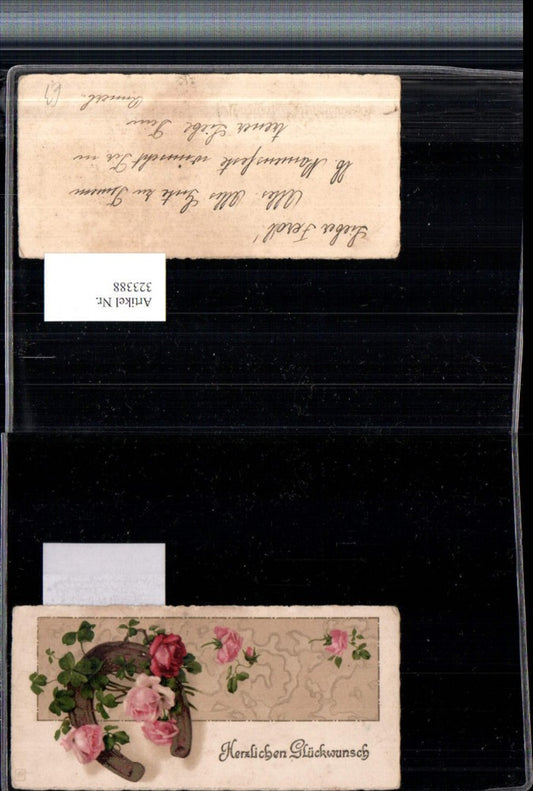 Lieber Ferdl!
Alles Alles Gute zu Deinem
lb Namensfeste wünscht Dir in
treuer Liebe Deine
Artikel Nr.
323388
Herzlichen Glückwunsch